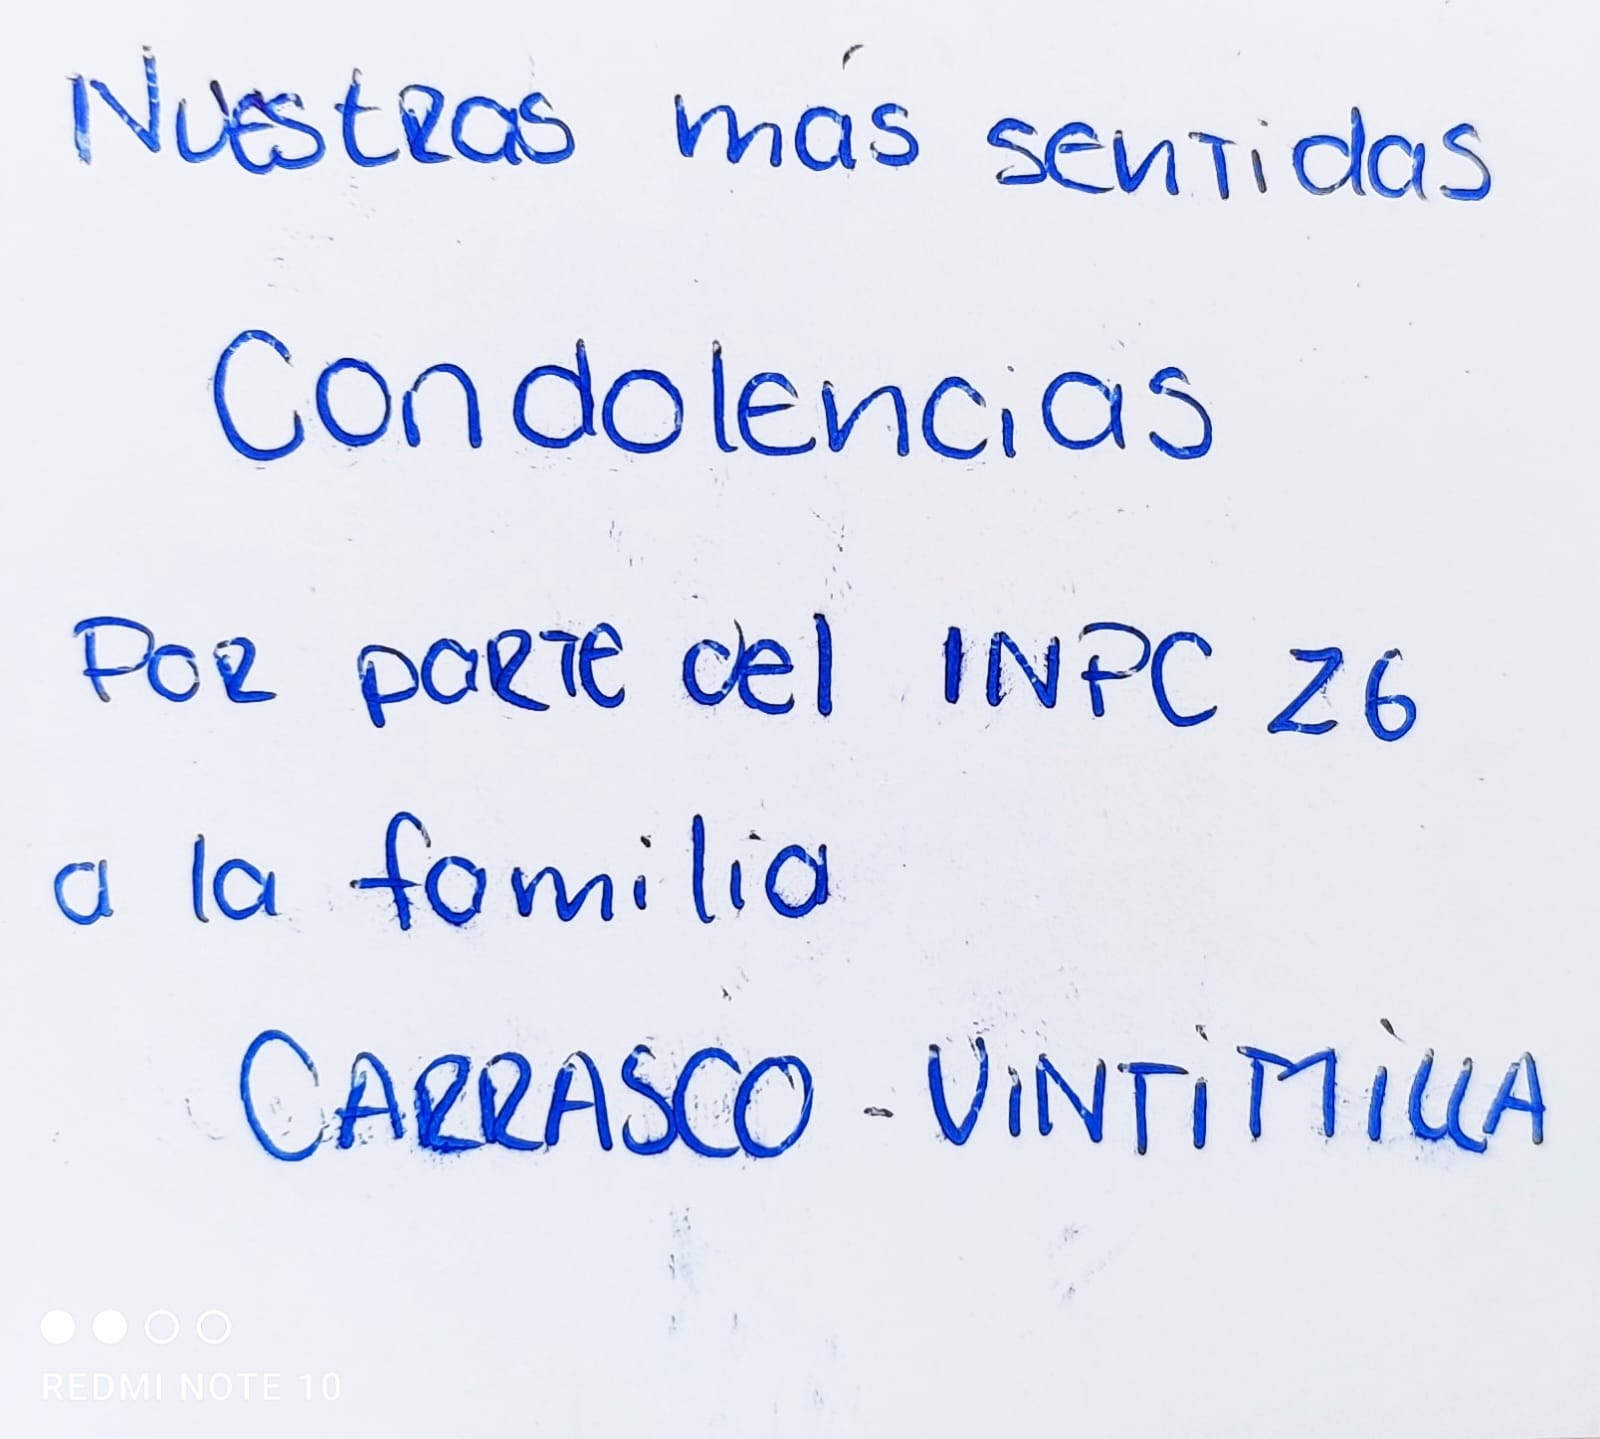 Nuestras más sentidas
Condolencias
Por parte del INPC Z6
a la familia
CARRASCO - VINTIMILLA
REDMI NOTE 10